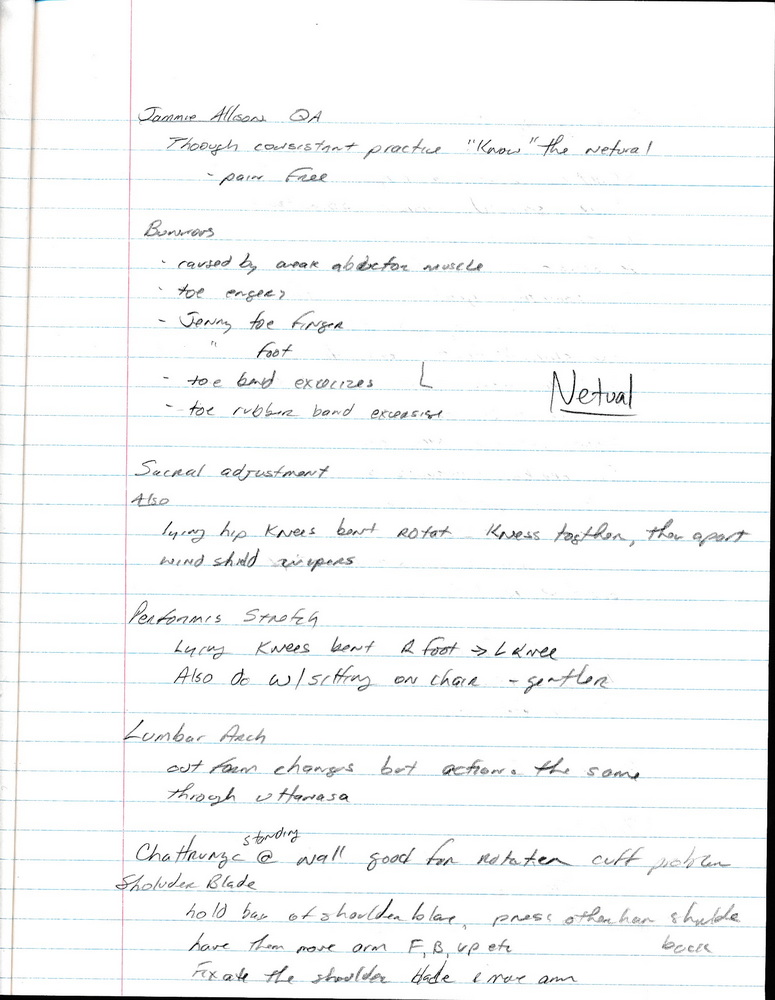 Jammie Allison QA
Though consistant practice "Know" the Netural
- pain Free
Bunions
- caused by weak abductor muscle
- toe
- Jenny toe finger
" foot
- toe band excercizes L
Netual
- toe rubber band
Sacral adjustment
Also
lying hip Knees bent Rotat Kness togther, then apart
wind shild wipers
Performis Stretch
Lying Knees bent R foot → L Knee
Also do w/ sitting on chair - gentler
Lumbar Arch
out form changes but actions the same
through uttanasa
standing
@ wall good for rotater cuff problem
Sholuder Blade
hold bac of shoulder blae, press other han shulde
have them move arm F, B, up etc back
Fixate the shoulder blade & move arm